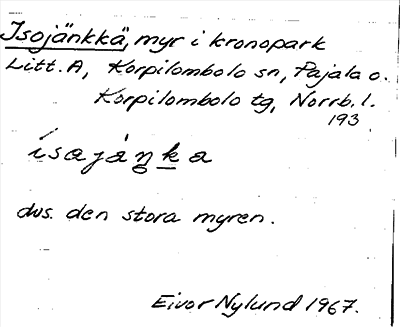 Isojänkkä, myr i kronopark
Litt. A, Korpilombolo sn, Pajala o.
Korpilombolo tg, Norrb. l.
193
ísajáŋka
dvs. den stora myren.
Eivor Nylund 1967.